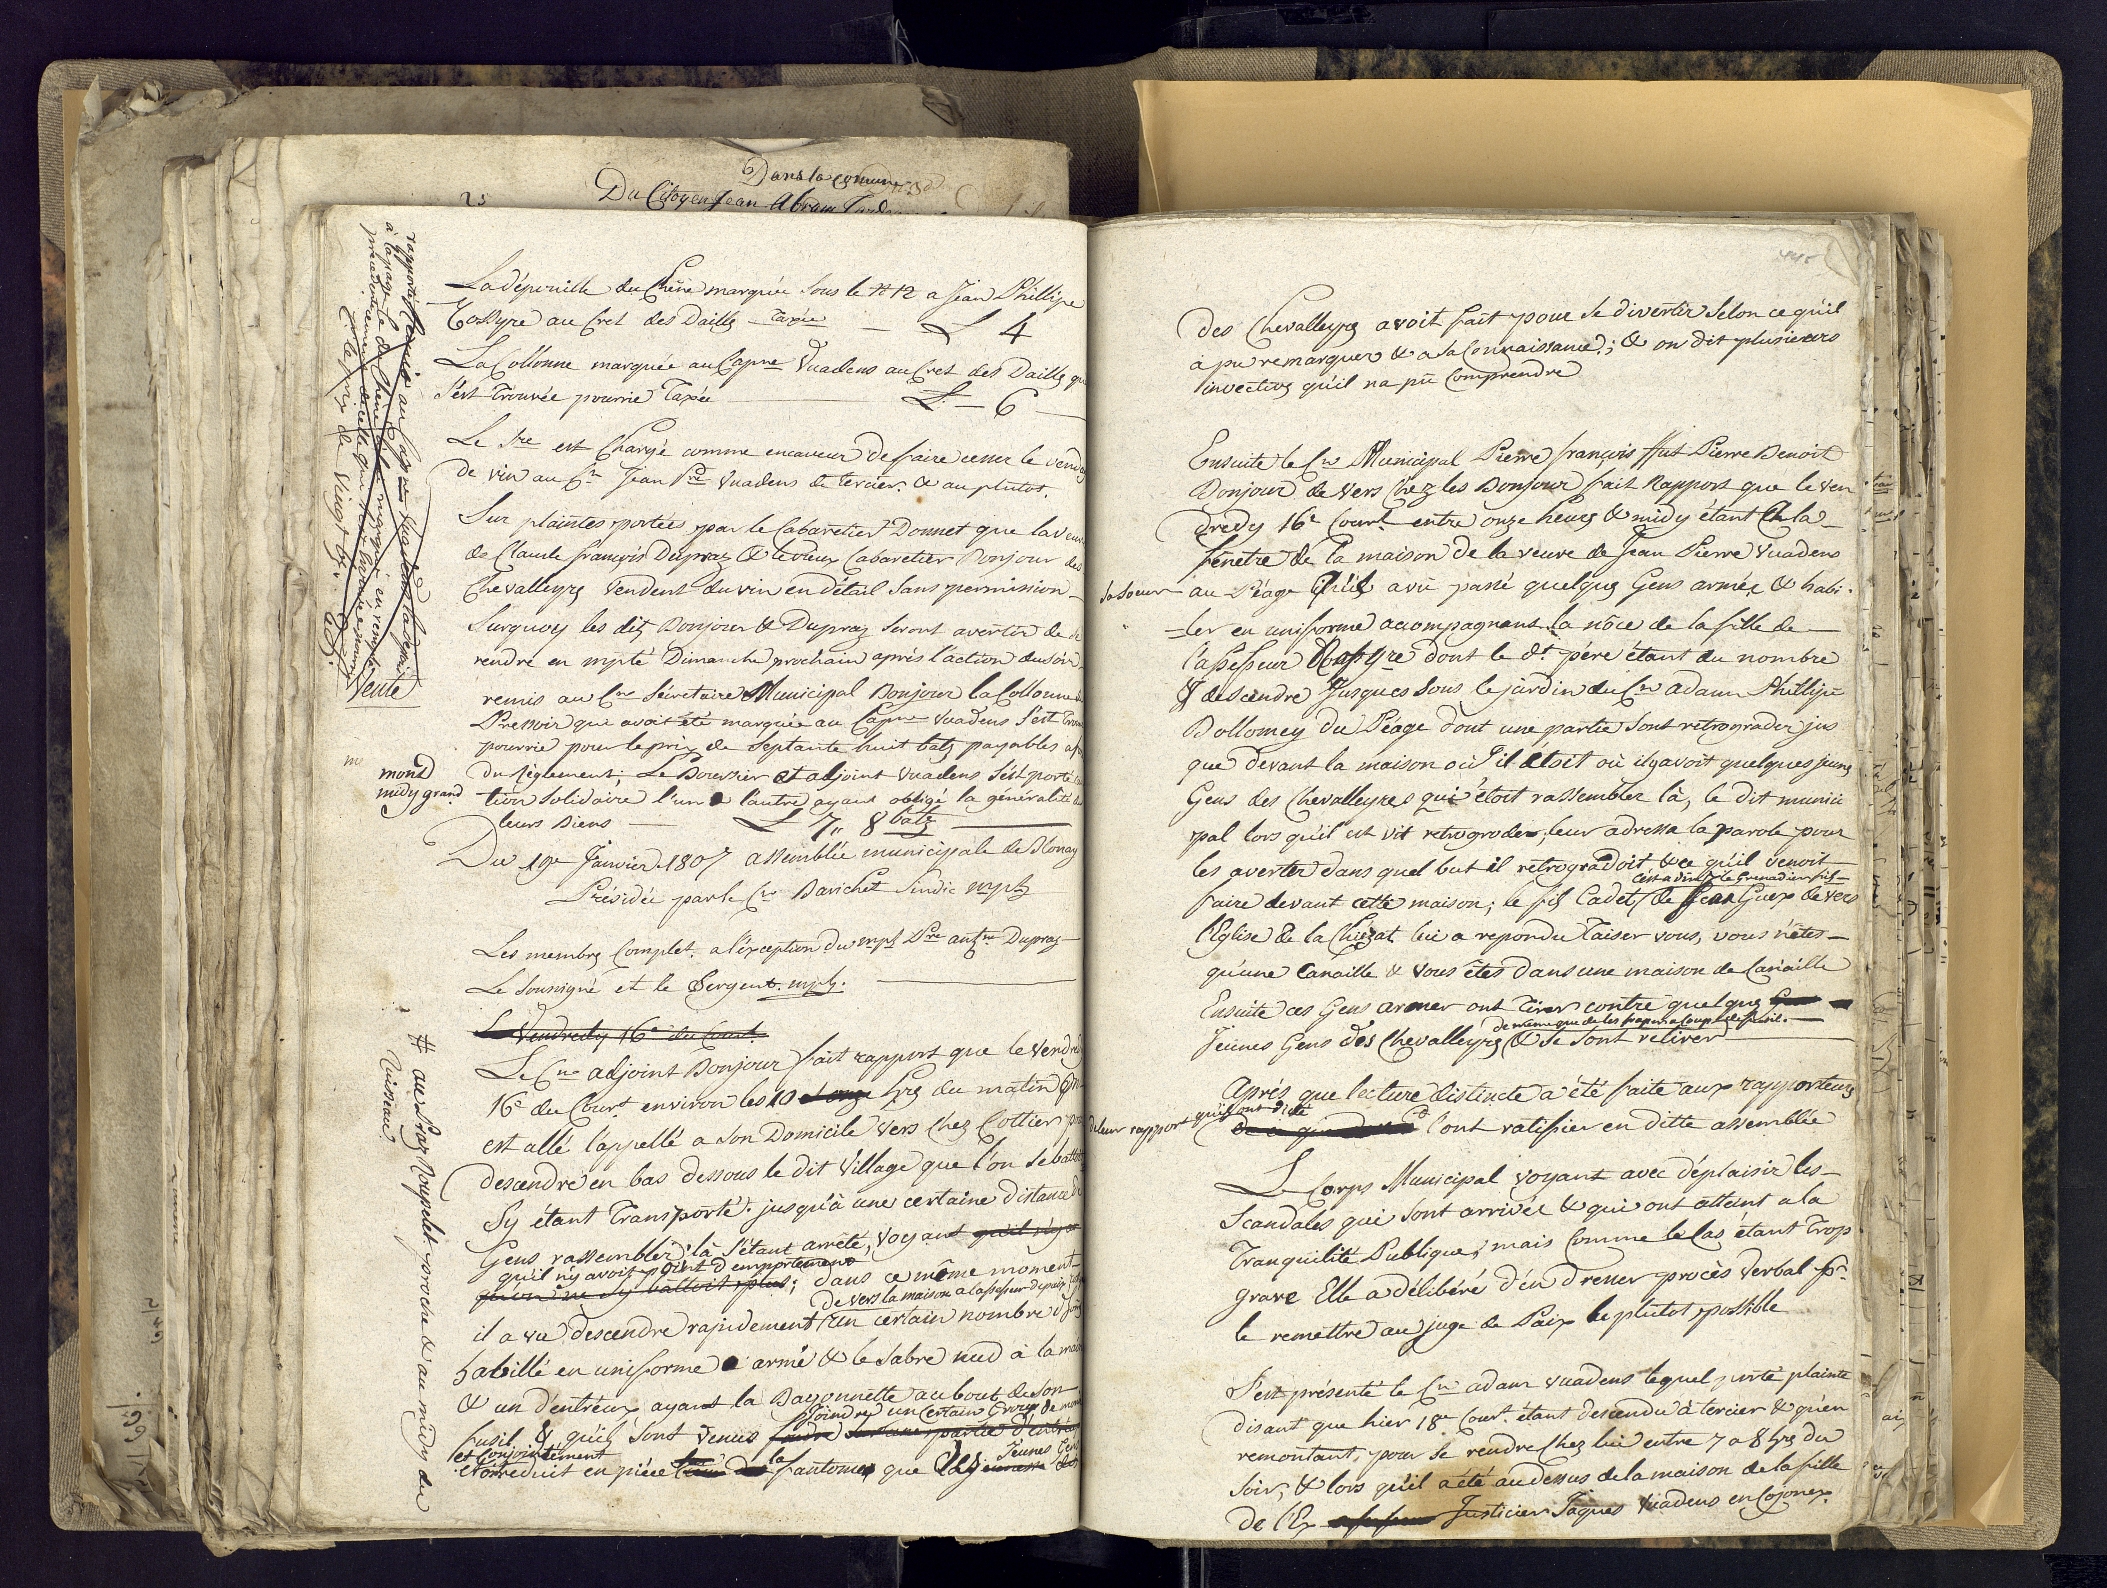 Dans la comune
Du Citoyen Jean Abram
25
rapporté
à la page
précédente
Vente
le prix de Vingt bz.
La dépouille du Chêne marquée sous le N 12 a Jean Phillipe
Cossyre au Cret des Daills Taxée — L 4
La Collonne marquée au Capne Vuadens au Cret des Daills qui
s'est Trouvée pourrie Taxée — L. — 6 —
Le Sre est Chargé comme encaveur de faire cesser le vendage
de vin au Cn Jean Vuadens de tercier. & au plutot.
Sur plaintes portées par le Cabaretier Donnet que la veuve
de Claude françois Dupraz & le vieux Cabaretier Bonjour des
Chevalleyrs Vendent du vin en détail sans permission
Surquoy les dits Bonjour & Dupraz seront avertir de se
rendre en mplté Dimanche prochain aprés l'action du soir
remis au Cn Sécretaire Municipal Bonjour la Collonne de
Pressoir que avoit été marquée au Capne Vuadens s'est trouvée
pourrie pour le prix de Septante huit batz payables a
mond
midy grand
du règlement; Le Boursier et adjoint Vuadens s'est porté cau
tion Solidaire l'un a l'autre ayant obligé la généralité de
leurs Biens — L 7,, 8 batz
Du 19e Janvier 1807 assemblée municipale de Blonay
Présidée par le Cn Barichet Sindic mpl
Les membrs Complet. a l'éxception du mpl Dupraz
Le Soussigné et le Sergent. mpl.
Le Vendredy 16e du Court.
Le Cne adjoint Bonjour fait rapport que le Vendredy
16e du Court environ les 10 et onze hrs du matin
est allé l'appellé a son Domicile vers Chez Cottier pour
descendre en bas dessous le dit Village que l'on se battoit
s'y étant Transporté jusqu'à une certaine distance de
Gens rassembler là s'étant arrêté, voyant
qu'il n'y avoit point d'emportement
qu'on ne s'y battoit plus; dans ce même moment
de vers la maison a l'assesseur
il a vu descendre rapidement un certain nombre
habillé en uniforme & armé & le Sabre nud à la main
& un d'entréux ayant la Bayonnette au bout de son
fusil & qu'ils sont venus joindre un certain Group de
et Conjointement
reduit en pièce la fantome que les jeunes Gens des
# au Praz proche & au midy du
Ruisseau
des Chevalleyrs avoit fait pour se divertir selon ce qu'il
à pu remarquer & a sa Connaissance; & on dit plusieurs
invectivs qu'il na pû Comprendre
Ensuite le Cn Municipal Pierre françois ffut Pierre Benoit
Bonjour de vers Chez les Bonjour fait Rapport que le ven
dredy 16e Court entre onze heurs & midy étant a la
fenetre de la maison de la veuve de Jean Pierre Vuadens
sa soeur au Péage qu'il a vû passé quelqus Gens armée & habi
ler en uniforme acompagnant la nôce de la fille de
l'assesseur dont le dt. pére étant du nombre
& descendre jusques sous le jardin du Cn adam Phillipe
Dollomey du Péage dont une partie sont retrograder jus
que devant la maison où il étoit où il y avoit quelques jeunes
Gens des Chevalleyres qui étoit rassembler là, le dit munici
pal lors qu'il ut vit retrograder, leur adressa la parole pour
les averter dans quel but il retrogradoit & ce qu'il venoit
c'est a dire le Grenadier fils
faire devant cette maison; le fils Cadet de Jean Guex de vers
l'Eglise de la Chiésat lui a repondu Taiser vous, vous n'êtes
qu'une Canaille & vous êtes dans une maison de Canaille
Ensuite ces Gens armer ont tirer contre quelqus
de même que de les fraper a coups de fusil.
Jeunes Gens des Chevalleyrs & se sont retirer
Aprés que lecture distincte a été faite aux rapporteurs
de leur rapport qu'ils ont dicté
l'ont ratiffier en ditte assemblée
Le Corps Municipal voyant avec déplaisir les
Scandales qui sont arrivée & qui ont atteint a la
Tranquilité Publique, mais Comme le Cas étant trop
grave Elle a délibéré d'en dresser procès Verbal pr.
le remettre au juge de Paix le plutot possible
S'est présenté le Cn adam Vuadens lequel porte plainte
disant que hier 18e Court. étant descendu à tercier & qu'en
remontant, pour se rendre Chez lui entre 7 a 8 hrs du
soir, & lors qu'il a été au dessus de la maison de la fille
de l'Ex Justicier Jaques Vuadens en Cojonex.